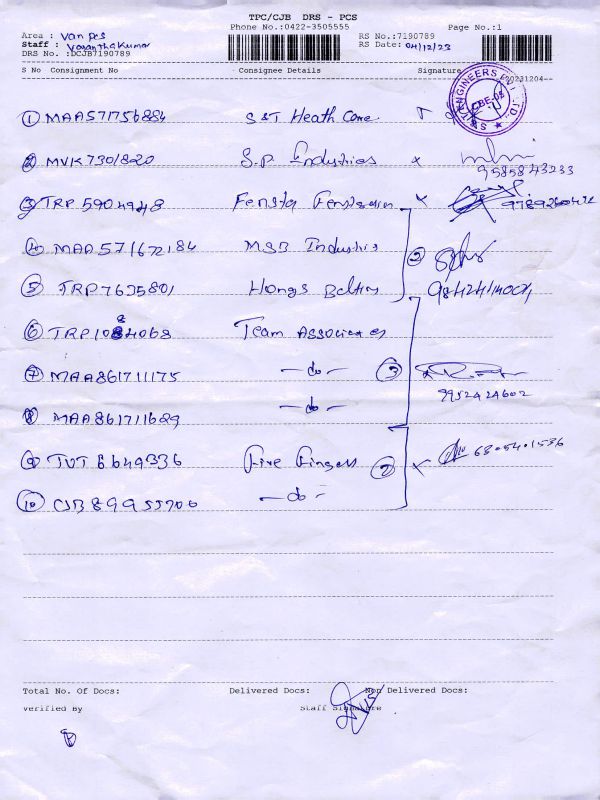 TPC/CJB DRS - PCS
Phone No.:0422-3505555 Page No.:1
Area : van pcs RS No.:7190789
Staff : Vasanthakumar RS Date: 04/12/23
DRS No. :DCJB7190789
S No Consignment No Consignee Details Signature 20231204--
ENGINEERS CBE-05
1 MAA571756884 S&T Heath Care
2 MVK7301820 S.P. Industries x
9585843233
3 TRP5904948 Fensta x
4 MAA571672184 MSB Industris 2
5 TRP7635801 Hongs 9842414004
6 TRP1084068 8 Team Associates
7 MAA861711175 -do- 3
9952424602
8 MAA861711629 -do-
9 TUT8649336 Five Fingers 2 x 6805401536
10 CJB89955706 -do-
Total No. Of Docs: Delivered Docs: Non Delivered Docs:
Verified By Staff Signature